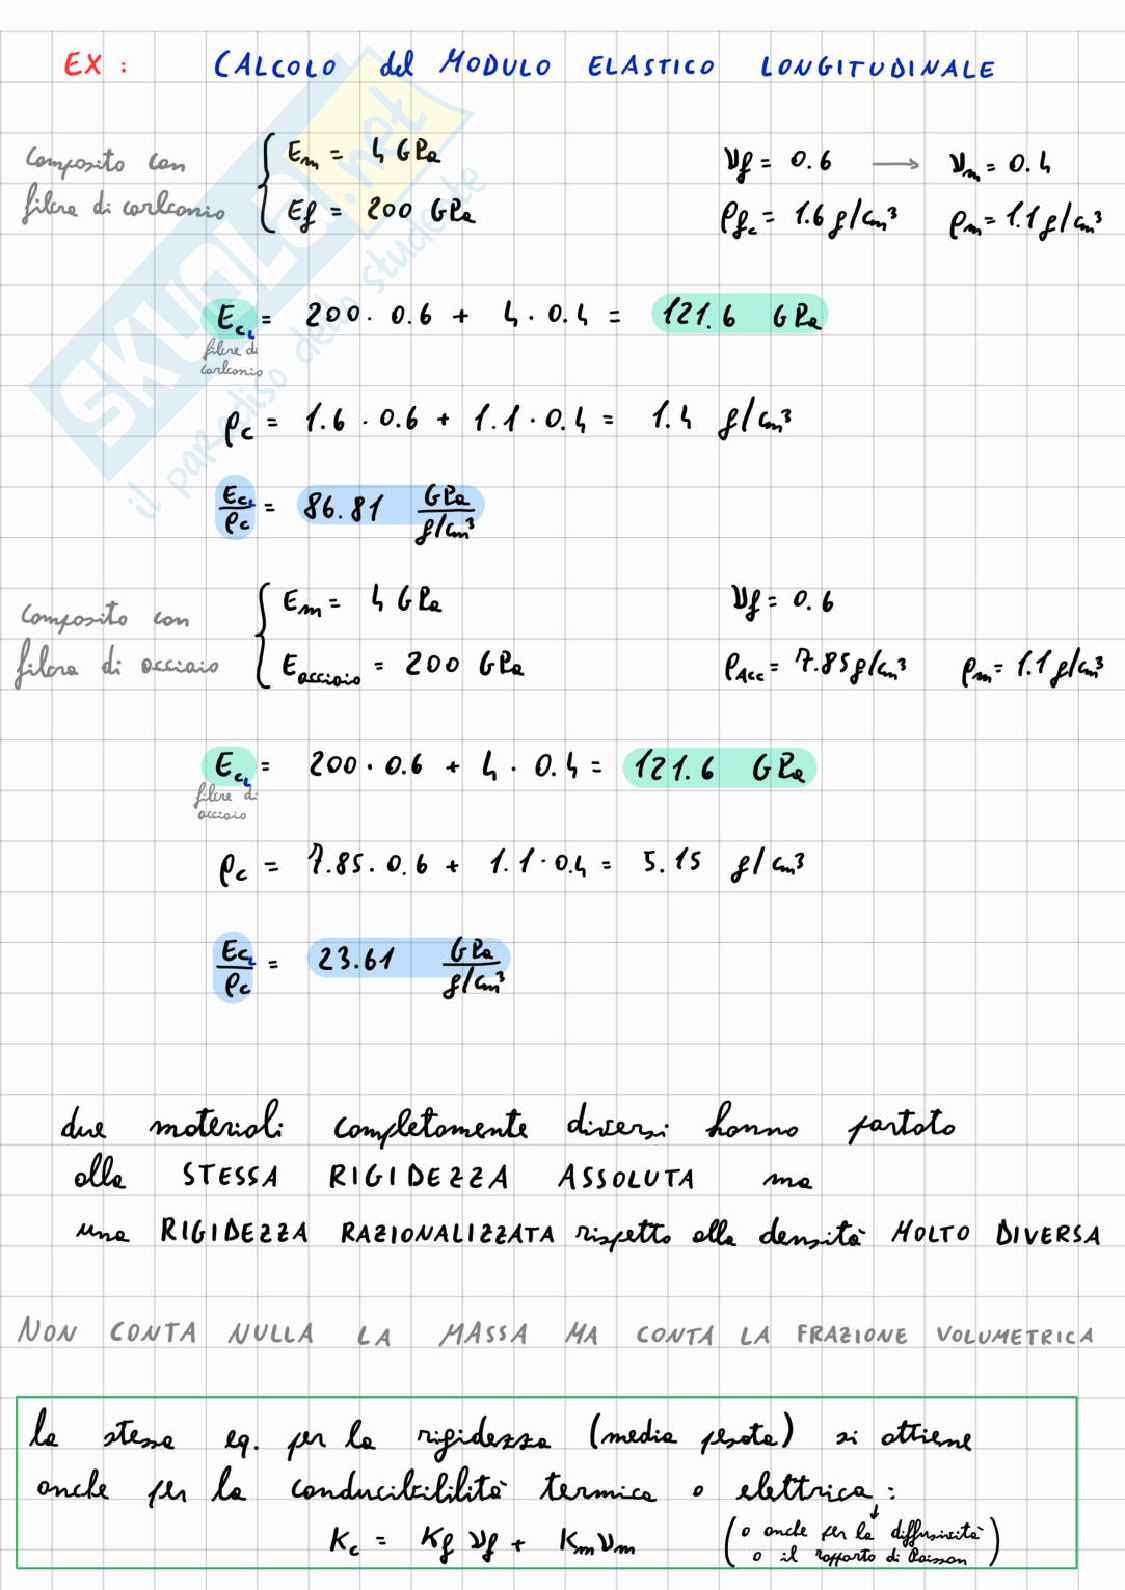 EX : CALCOLO del MODULO ELASTICO LONGITUDINALE
Composito con
fibre di carbonio
Em = 4 GPa
Ef = 200 GPa
νf = 0.6 → νm = 0.4
ρfc = 1.6 g/cm³ ρm = 1.1 g/cm³
EcL = 200 · 0.6 + 4 · 0.4 = 121.6 GPa
fibre di
carbonio
ρc = 1.6 · 0.6 + 1.1 · 0.4 = 1.4 g/cm³
EcL/ρc = 86.81 GPa/g/cm³
Composito con
fibra di acciaio
Em = 4 GPa
Eacciaio = 200 GPa
νf = 0.6
ρAcc = 7.85 g/cm³ ρm = 1.1 g/cm³
EcL = 200 · 0.6 + 4 · 0.4 = 121.6 GPa
fibre di
acciaio
ρc = 7.85 · 0.6 + 1.1 · 0.4 = 5.15 g/cm³
EcL/ρc = 23.61 GPa/g/cm³
due materiali completamente diversi hanno portato
alla STESSA RIGIDEZZA ASSOLUTA ma
una RIGIDEZZA RAZIONALIZZATA rispetto alla densità MOLTO DIVERSA
NON CONTA NULLA LA MASSA MA CONTA LA FRAZIONE VOLUMETRICA
la stessa eq. per la rigidezza (media pesata) si ottiene
anche per la conducibilità termica o elettrica :
Kc = Kf νf + Km νm
(o anche per la diffusività
o il rapporto di Poisson)
SKUOLA.net
il paradiso dello studente